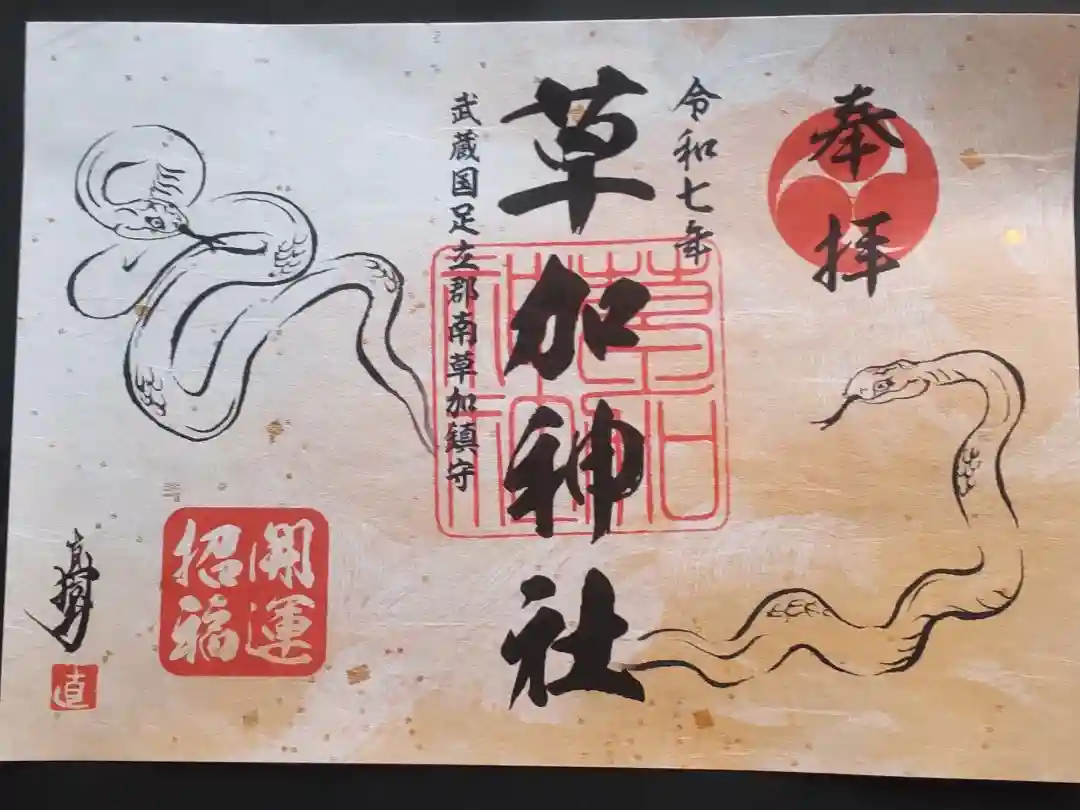 奉拝
令和七年
草加神社
草加神社
武蔵国足立郡南草加鎮守
開運
招福
直